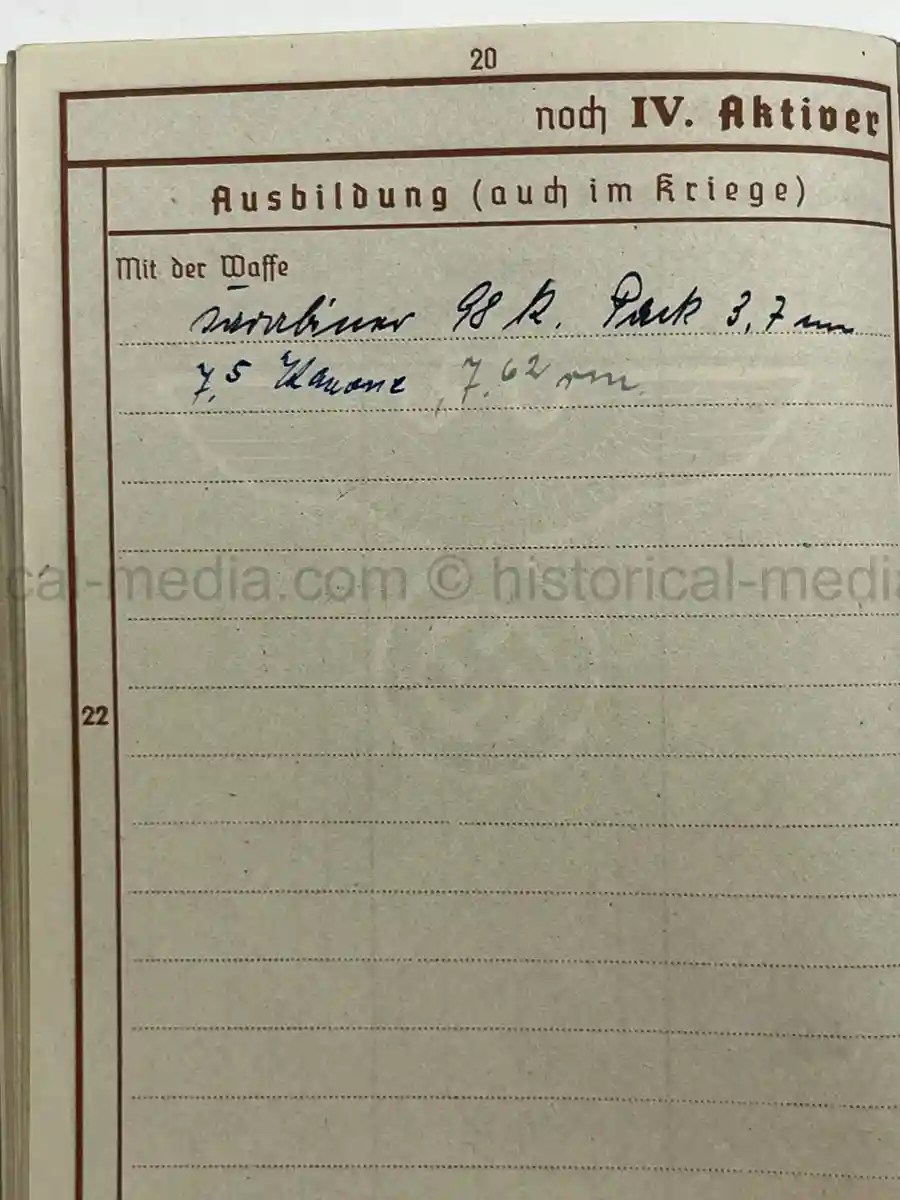 20
noch IV. Aktiver
Ausbildung (auch im Kriege)
Mit der Waffe
98 K. Pack 3,7 mm
7,5 Kanone, 7,62 cm.
cal-media.com © historical-media
22